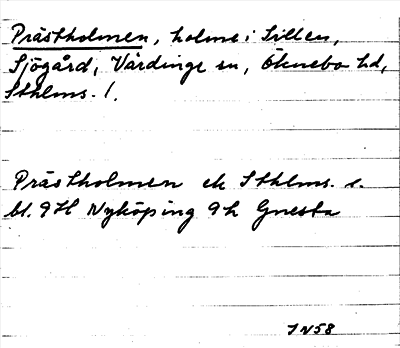 Prästholmen, holme i Sillen,
Sjögård, Vårdinge sn, Öknebo hd,
Sthlms. l.
Prästholmen ek Sthlms. s.
bl. 9H Nyköping 9h Gnesta
JN58